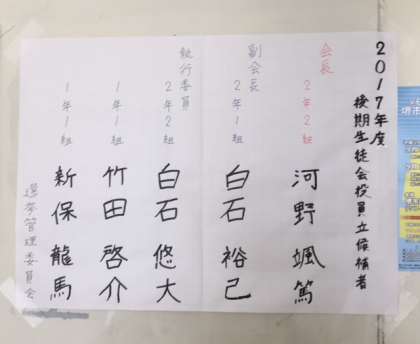 2017年度
後期生徒会役員立候補者
会長
2年2組
河野 颯篤
副会長
2年1組
白石 裕己
執行委員
2年2組
白石 悠大
1年1組
竹田 啓介
1年1組
新保 龍馬
選挙管理委員会